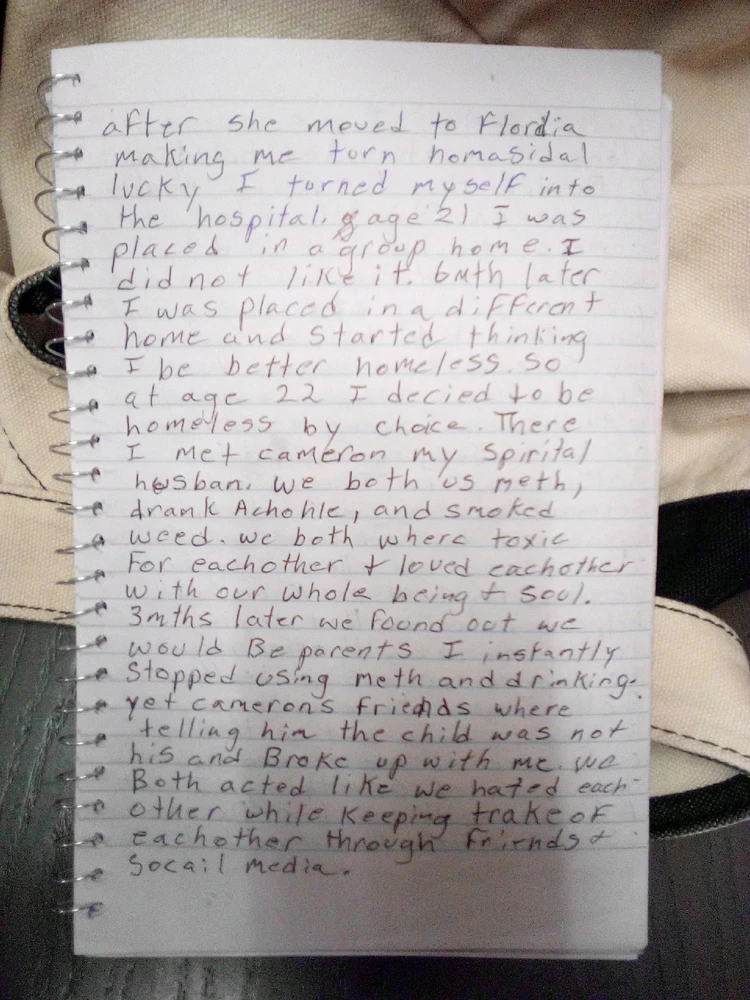 after she moved to Flordia
making me torn homasidal
lucky I torned myself into
the hospital. age 21 I was
placed in a group home. I
did not like it. 6mth later
I was placed in a different
home and started thinking
I be better homeless. So
at age 22 I decied to be
homeless by choice. There
I met cameron my spirital
hosban. we both us meth,
drank Achohle, and smoked
weed. we both where toxic
For eachother + loved eachother
with our whole being + soul.
3mths later we found out we
would Be parents I instantly
stopped using meth and drinking.
yet camerons friends where
telling him the child was not
his and Broke up with me. we
Both acted like we hated each
other while keeping trake of
eachother through friends +
Socail media.